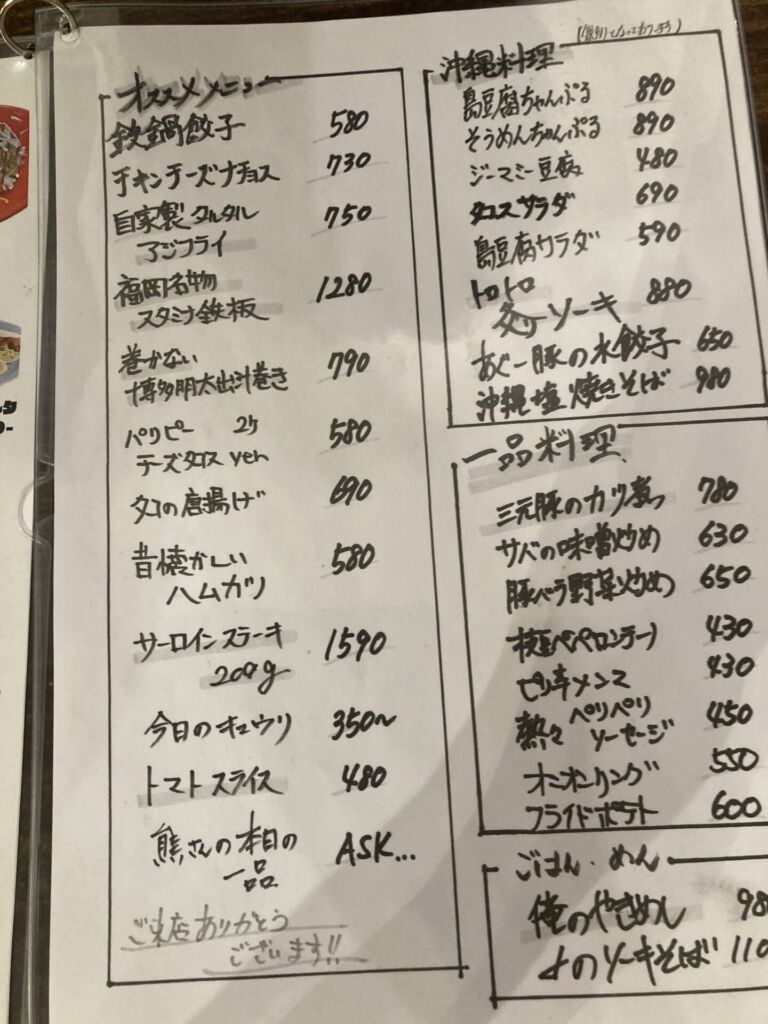 オススメメニュー
鉄鍋餃子 580
チキンチーズナチョス 730
自家製タルタル 750
アジフライ
福岡名物 1280
スタミナ鉄板
巻かない 790
博多明太出汁巻き
パリピー 2ケ 580
チーズタコス yen
タコの唐揚げ 690
昔懐かしい 580
ハムカツ
サーロインステーキ 1590
200g
今日のキュウリ 350〜
トマトスライス 480
熊さんの本日の ASK...
一品
ご来店ありがとう
ございます!!
沖縄料理
島豆腐ちゃんぷる 890
そうめんちゃんぷる 890
ジーマミー豆腐 480
タコスサラダ 690
島豆腐サラダ 590
トロトロ 880
炙りソーキ
あぐー豚の水餃子 650
沖縄塩焼きそば 980
一品料理
三元豚のカツ煮 780
サバの味噌炒め 630
豚バラ野菜炒め 650
枝豆ペペロンチーノ 430
ピリ辛メンマ 430
熱々ペリペリ 450
ソーセージ
オニオンリング 550
フライドポテト 600
ごはん・めん
俺のやきめん 98
のソーキそば 110